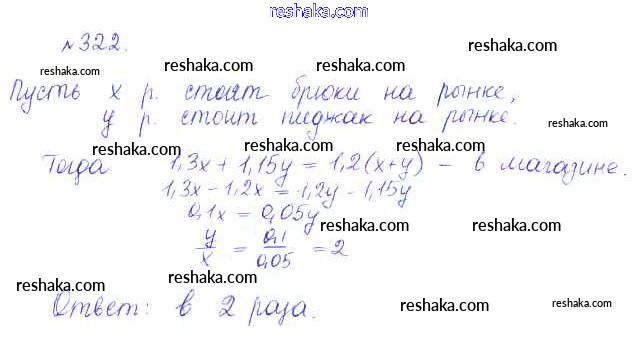 reshaka.com
№322.
reshaka.com
reshaka.com
reshaka.com
Пусть x р. стоит брюки на рынке,
reshaka.com
reshaka.com
y р. стоит пиджак на рынке.
reshaka.com
reshaka.com
reshaka.com
Тогда 1,3x + 1,15y = 1,2(x+y) – в магазине.
reshaka.com
reshaka.com
1,3x – 1,2x = 1,2y – 1,15y
0,1x = 0,05y
reshaka.com
reshaka.com
y/x = 0,1/0,05 = 2
reshaka.com
reshaka.com
Ответ: в 2 раза.
reshaka.com
reshaka.com